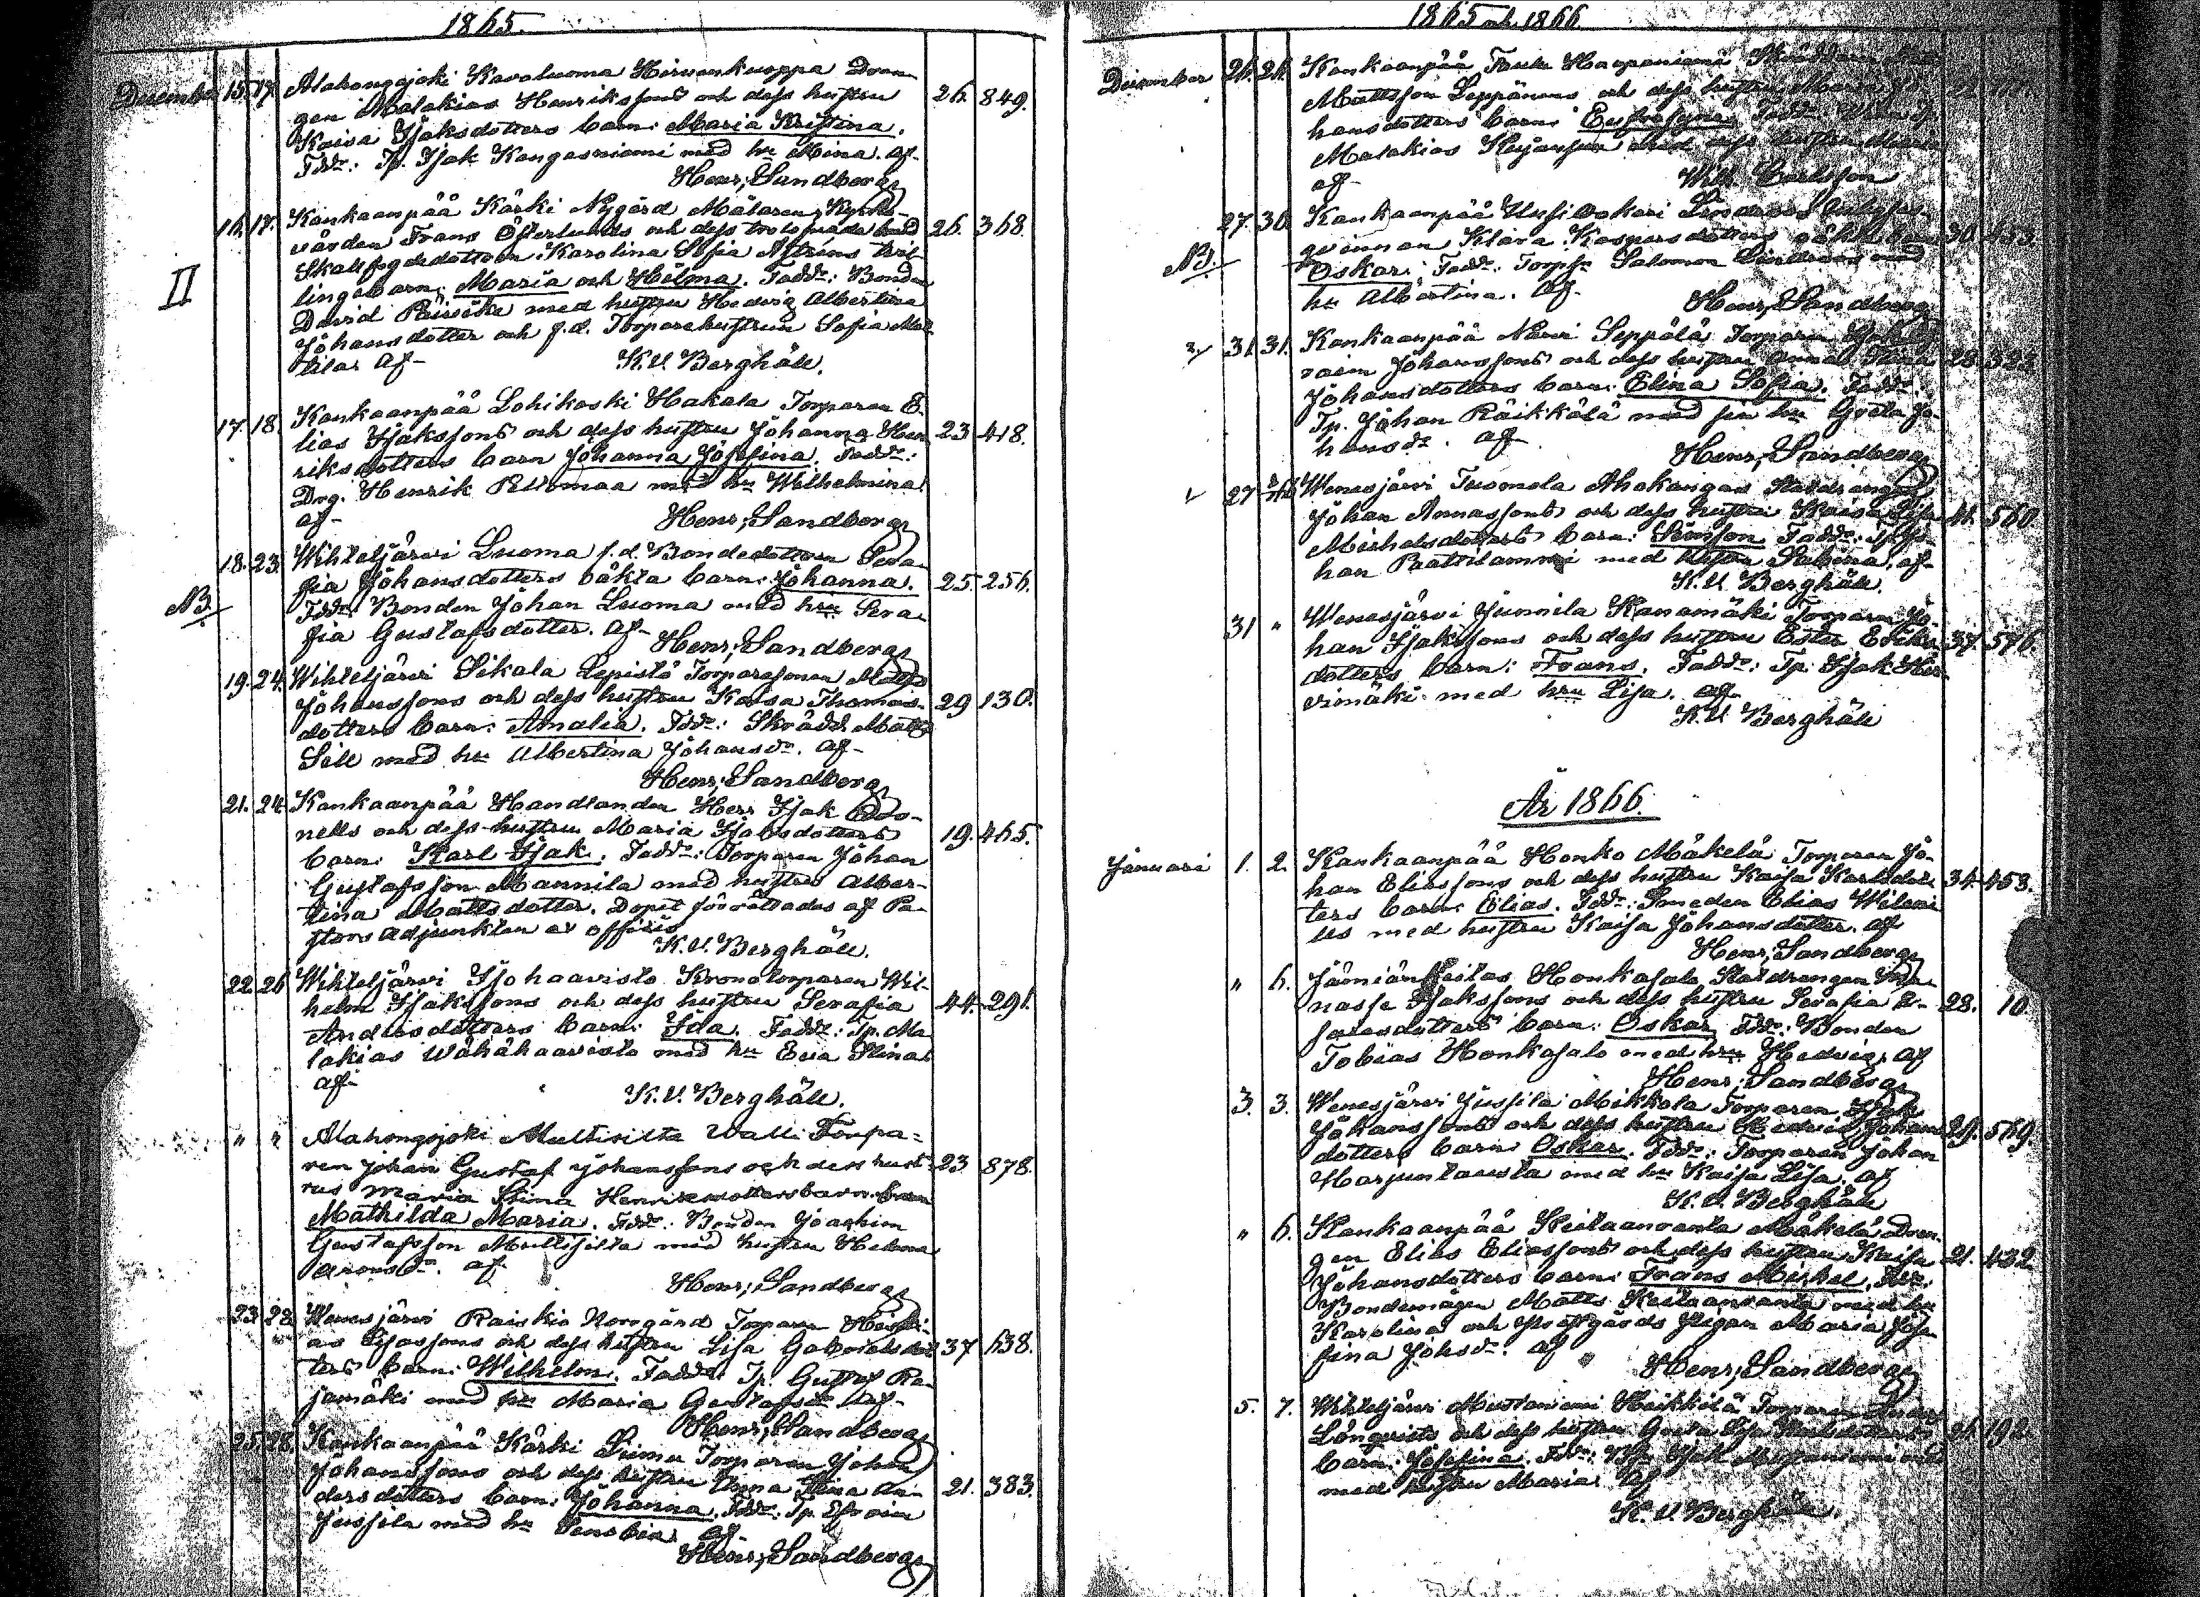 1865.
December 15. 17. Alahongojoki Kovaluoma Hirvonkuoppa Drän-
gen Malakias Henrikssons och dess hustru 26. 849.
Kaisa Isaksdotters barn: Maria Kristina.
Fddr: Tp. Isak Kangasniemi med hu Mina. af-
Henr; Sandberg
16. 17. Kankaanpää Kärki Nygård Målaren, Kyrko-
värden Frans Österlunds och dess trolofvade 26. 368.
Karolina Sofia
II lingabarn: Maria och Helma. Faddr: Bonden
David med hustru Hedvig Albertina
Johansdotter och f.d. Torparehustrun Sofia
af- K.V. Berghäll.
17. 18. Kankaanpää Lohikoski Hakala Torparen E-
lias Isakssons och dess hustru Johanna Hen- 23. 418.
riksdotters barn Johanna Josefina. Faddr:
Drg. Henrik med hu Wilhelmina
af- Henr; Sandberg
18. 23. Wihteljärvi Luoma f.d. Bondedottern Sera-
fia Johansdotters oäkta barn: Johanna. 25. 256.
NB. Fddr: Bonden Johan Luoma med hru Sera-
fia Gustafsdotter. af- Henr; Sandberg
19. 24. Wihteljärvi Sikala Lepistö Torparesonen Matts
Johanssons och dess hustru Kaisa Thomas- 29. 130.
dotters barn: Amalia. Fddr: Skrädd. Matts
Sell med hu Albertina Johansdr. af-
Henr; Sandberg
21. 24. Kankaanpää Handlanden Herr Isak
nells och dess hustru Maria Isaksdotters 19. 465.
barn: Karl Isak. Faddr: Torparen Johan
Gustafsson Mannila med hustru Alber-
tina Mattsdotter. Dopet förrättades af Pa-
stors Adjunkten ex officio
K.V. Berghäll.
22. 26. Wihteljärvi Isohaavisto Kronotorparen Wil-
helm Isakssons och dess hustru Serafia 44. 291.
Andersdotters barn: Ida. Faddr: Tp. Ma-
lakias Wähähaavisto med hu Eva Stina
af-
K.V. Berghäll.
" " Alahongojoki Multisilta Walli Torpa-
ren Johan Gustaf Johanssons och dess hust- 23. 878.
rus Maria Stina Henriksdotters barn:
Mathilda Maria. Fddr: Bonden Joachim
Gustafsson Multisilta med hustru Helena
Aronsdr. af
Henr; Sandberg
23. 28. Wenesjärvi Raiskio Norrgård Torparen
och dess hustru Lisa Gabrielsdot- 37. 638.
ters barn: Wilhelm. Faddr: Tp. Gustaf Ra-
jamäki med hu Maria Gustafsdr. af-
Henr; Sandberg
25. 28. Kankaanpää Kärki Torparen Johan
Johanssons och dess hustru Anna Stina An-
dersdotters barn: Johanna. Fddr: Tp. Efraim 21. 383.
Jussila med hu Senobia af-
Henr; Sandberg
1865 och 1866.
December 26. 26. Kankaanpää
Mattsson Leppänens och dess hustru Maria Jo-
hansdotters barn: Eufrosyne. Faddr:
Malakias med dess hustru Maria
af-
27. 30. Kankaanpää
qvinnan Klara Kaspersdotters oäkta barn 30. 453.
NB. Oskar. Faddr: Torp. Salomon med
hu Albertina. af- Henr; Sandberg
31. 31. Kankaanpää Narvi Seppälä Torparen
raim Johanssons och dess hustru Anna Stina 28. 323.
Johansdotters barn: Elina Sofia. Faddr:
Tp. Johan Räikkälä med sin hu Greta Jo-
hansdr. af
Henr; Sandberg
27. Wenesjärvi Tuomola Ahokangas Statdrängen
Johan och dess hustru Kaisa 41. 560.
Michelsdotters barn: Simson. Faddr:
han med hustru Sabina. af-
K.V. Berghäll.
31 " Wenesjärvi Junnila Torparen Jo-
han Isakssons och dess hustru Ester Eriks- 37. 576.
dotters barn: Frans. Faddr: Tp. Isak Hir-
vimäki med hru Lisa. af-
K.V. Berghäll
År 1866.
Januari 1. 2. Kankaanpää Honko Mäkelä Torparen Jo-
han Eliassons och dess hustru Kaisa Karlsdot- 34. 458.
ters barn: Elias. Fddr: Smeden Elias Weleni-
us med hustru Kaisa Johansdotter. af
Henr; Sandberg
" 6. Jämiänkeitas Honkasalo Statdrängen Ma-
nasse Isakssons och dess hustru Serafia E- 28. 10
sarasdotters barn: Oskar. Fddr: Bonden
Tobias Honkasalo med hru Hedvig. af
Henr; Sandberg
3. 3. Wenesjärvi Jussila Mikkola Torparen Isak
Johanssons och dess hustru Hedvig Johans- 29. 569.
dotters barn Oskar. Fddr: Torparen Johan
Harjunlausta med hu Kaisa Lisa. af
K.V. Berghäll
" 6. Kankaanpää Keitaanranta Mäkelä Drän-
gen Elias Eliassons och dess hustru Kaisa 21. 432
Johansdotters barn: Frans Mickel. Fddr:
Bondemågen Matts Keitaanranta med hu
Karolina och Prostgårds Pigan Maria Jose-
fina Johsdr. af
Henr; Sandberg
5. 7. Wihteljärvi Mustaniemi Heikkilä Torparen
Lönqvists och dess hustru Greta Lisa 26. 192.
barn: Josefina. Fddr: Isak Mustaniemi
med hustru Maria. af
K.V. Berghäll.